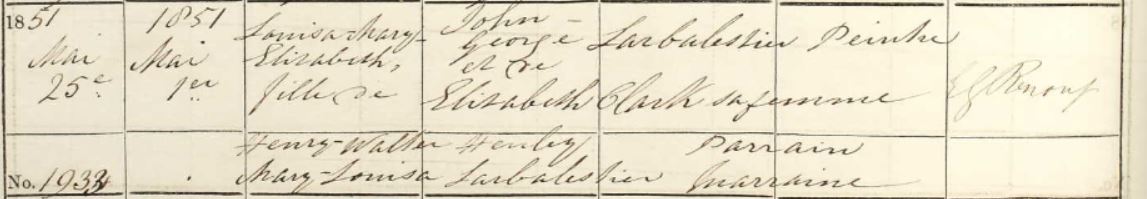 1851 1851 Louisa Mary- John -
Mai Mai Elizabeth, George Larbalestier Peintre
25e 1er fille de et de
Elizabeth Clark sa femme E G Renouf
Henry-Walter Henley Parrain
No. 1933 . Mary-Louisa Larbalestier Marraine